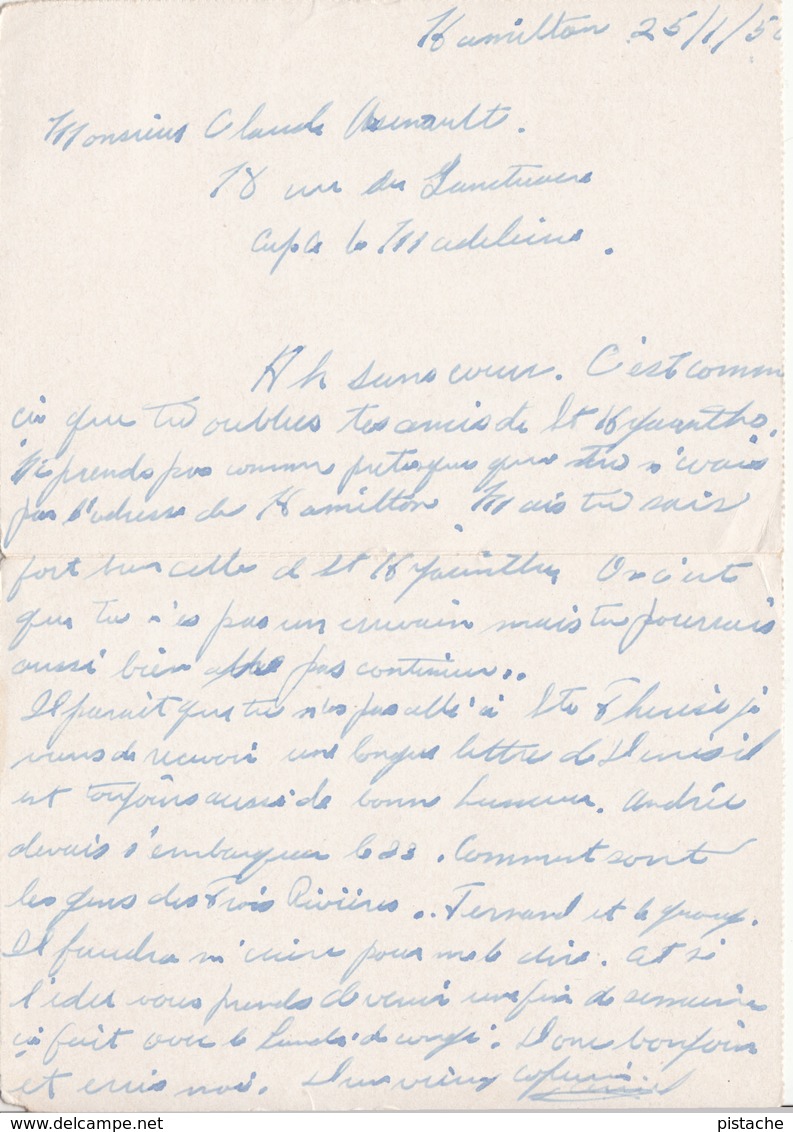 Hamilton 25/1/5
Monsieur Claude Asenault.
18 rue du Sanctuaire
Cap de la Madeleine.
Ah sans coeur. C'est comm
ca que tu oublies tes amis de St Hyacinthe.
prends pas comme pretexte que tu n'avais
pas l'adresse de Hamilton. Mais tu sais
fort bien celle de St Hyacinthe. On c'est
que tu n'es pas un ecrivain mais tu pourrais
aussi bien pas continuer..
Il parait que tu n'es pas allé à Ste Therese je
viens de recevoir une longue lettre de Denis il
est toujours aussi de bonne humeur. Andrée
devais s'embarquer le 23. Comment sont
les gens des Trois Rivières.. Fernand et le group.
Il faudra m'ecrire pour me le dire. Et si
l'idee vous prends de venir une fin de semaine
ca fait avec le Lundi de congé. Donc bonjour
et ecris moi. D'un vieux copain
pistache